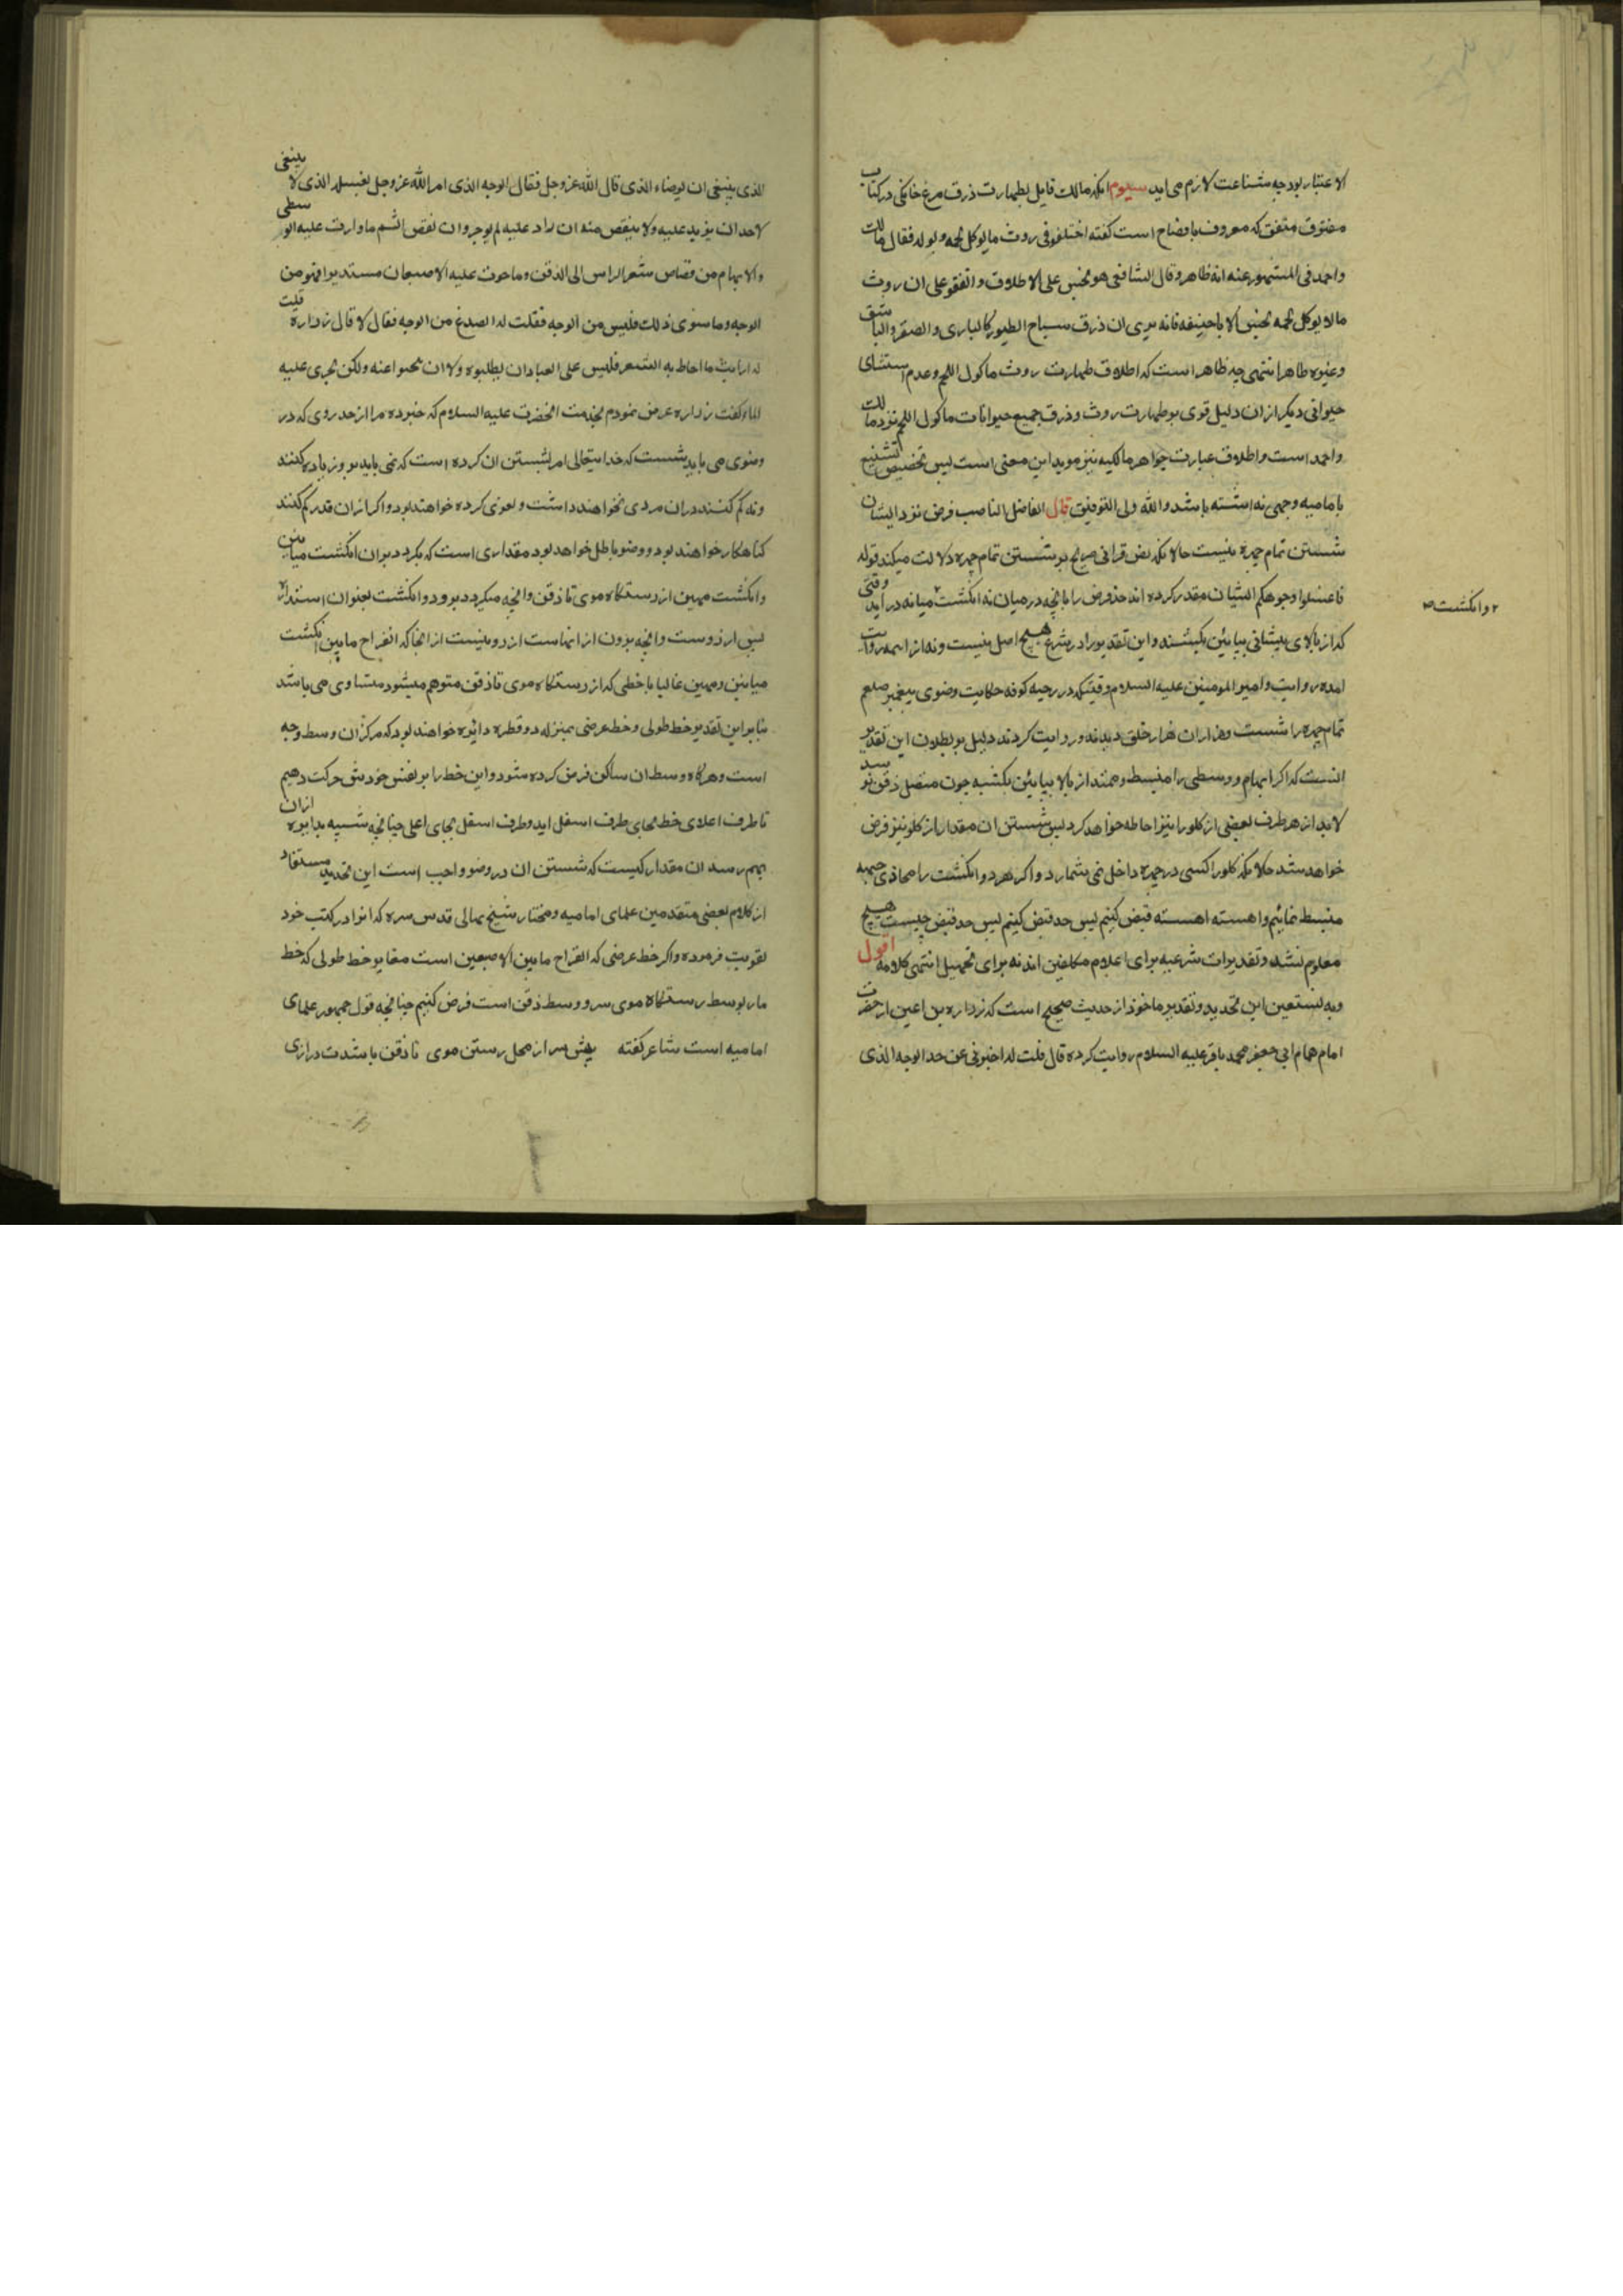 الاعتبار بود چه شناعت لازم می اید سیوم انکه مالک قایل بطهارت ذرق مرغ خانکی در کتاب
مفترق متفق که معروف بافصاح است کفته اختلفو فی روث مایوکل لحمه و بوله فقال مالک
واحمد فی المشهور عنه انه طاهر وقال الشافعی هو نجس علی الاطلاق واتفقو علی ان روث
مالا یوکل لحمه نجس الا باحنیفه فانه یری ان ذرق سباع الطیور کالبازی والصقر والباشق
وغیره طاهر انتهی چه ظاهر است که اطلاق طهارت روث ماکول اللحم وعدم استثنای
حیوانی دیکر ازان دلیل قوی بر طهارت روث وذرق جمیع حیوانات ماکول اللحم نزد مالک
واحمد است واطلاق عبارت جواهر مالکیه نیز موید این معنی است پس تخصیص تشنیع
بامامیه وجهی نه اشته باشد والله ولی التوفیق قال الفاضل الناصب فرض نزد ایشان
شستن تمام چهره نیست حالانکه نص قرانی صریح بر شستن تمام چهره دلالت میکند قوله
فاغسلوا وجوهکم ایشان مقدر کرده اند حد فرض را بانچه در میان نه انکشت میانه در اید وقتی
۲ وانکشت ۳
که از بالای پیشانی بپایین بکشند واین تقدیر را در شرع هیچ اصل نیست ونه از ایمه روایت
امده روایت وامیر المومنین علیه السلام وقتیکه در رحبه کوفه حکایت وضوی پیغمبر صلعم
تمام چهره را شست وهزاران هزار خلق دیدند وروایت کردند دلیل بر بطلان این تقدیر
انست که اکر ابهام ووسطی را منبسط وممتد از بالا بپایین بکشیه چون متصل ذقن رسد
لابد از هر طرف بعضی از کلو را نیز احاطه خواهد کرد پس شستن ان مقدار از کلو نیز فرض
خواهد شد حالانکه کلو را کسی در چهره داخل نمی شمارد واکر هر دو انکشت را محاذی جبهه
منبسط نمائیم واهسته اهسته قبض کنیم پس حد قبض کنیم پس حد قبض چیست هیچ
معلوم نشد وتقدیرات شرعیه برای اعلام مکلفین اند نه برای تجهیل انتهی کلامه اقول
وبه نستعین این تحدید وتقدیر ماخوذ از حدیث صحیح است که زراره بن اعین از حضرت
امام همام ابی جعفر محمد باقر علیه السلام روایت کرده قال قلت له اخبرنی عن حد الوجه الذی
الذی ینبغی ان یوضاء الذی قال الله عز وجل فقال الوجه الذی امر الله عز وجل بغسله الذی لا ینبغی
لاحد ان یزید علیه ولا ینقص منه ان زاد علیه لم یوجر وان نقص اثم ما دارت علیه الوسطی
والابهام من قصاص شعر الراس الی الذقن وما حوت علیه الاصبعان مستدیرا فهو من
الوجه وما سوی ذلک فلیس من الوجه فقلت له الصدغ من الوجه فقال لا قال زراره قلت
له ارایت ما احاط به الشعر فلیس علی العباد ان یطلبوه ولا ان یبحثوا عنه ولکن یجری علیه
الماء کفت زراره عرض نمودم بخدمت انحضرت علیه السلام که خبر ده مرا از حد روی که در
وضوی می باید شست که خدایتعالی امر بشستن ان کرده است که نمی باید برو زیاده کنند
ونه کم کنند دران مردی نخواهند داشت ولغوی کرده خواهند بود واکر ازان قدر کم کنند
کناهکار خواهند بود ووضو باطل خواهد بود مقداری است که بکردد بران انکشت میانین
وانکشت مهین از رستنکاه موی تا ذقن وانچه میکردد برو دو انکشت بعنوان استداره
پس از روست وانچه بیرون از انهاست از رو نیست از انجا که انفراج مابین انکشت
میانین ومهین غالبا با خطی که از رستنکاه موی تا ذقن متوهم میشود مساوی می باشد
بنابر این تقدیر خط طولی وخط عرضی بمنزله دو قطره دائره خواهند بود که مرکز ان وسط وجه
است وهرکاه وسط ان ساکن فرض کرده شود واین خط را بر نفس خودش حرکت دهیم
تا طرف اعلای خط بجای طرف اسفل اید وطرف اسفل بجای اعلی چنانچه شبیه بدایره ازان
بهم رسد ان مقدار کیست که شستن ان در وضو واجب است این تحدید مستفاد
از کلام بعضی متقدمین علمای امامیه ومختار شیخ بهائی قدس سره که انرا در کتب خود
تقویت فرموده واکر خط عرضی که انفراج مابین الاصبعین است مغایر خط طولی که خط
مار بوسط رستنکاه موی سر ووسط ذقن است فرض کنیم چنانچه قول جمهور علمای
امامیه است شاعر کفته پیش سر از محل رستن موی تا ذقن باشدت درازی